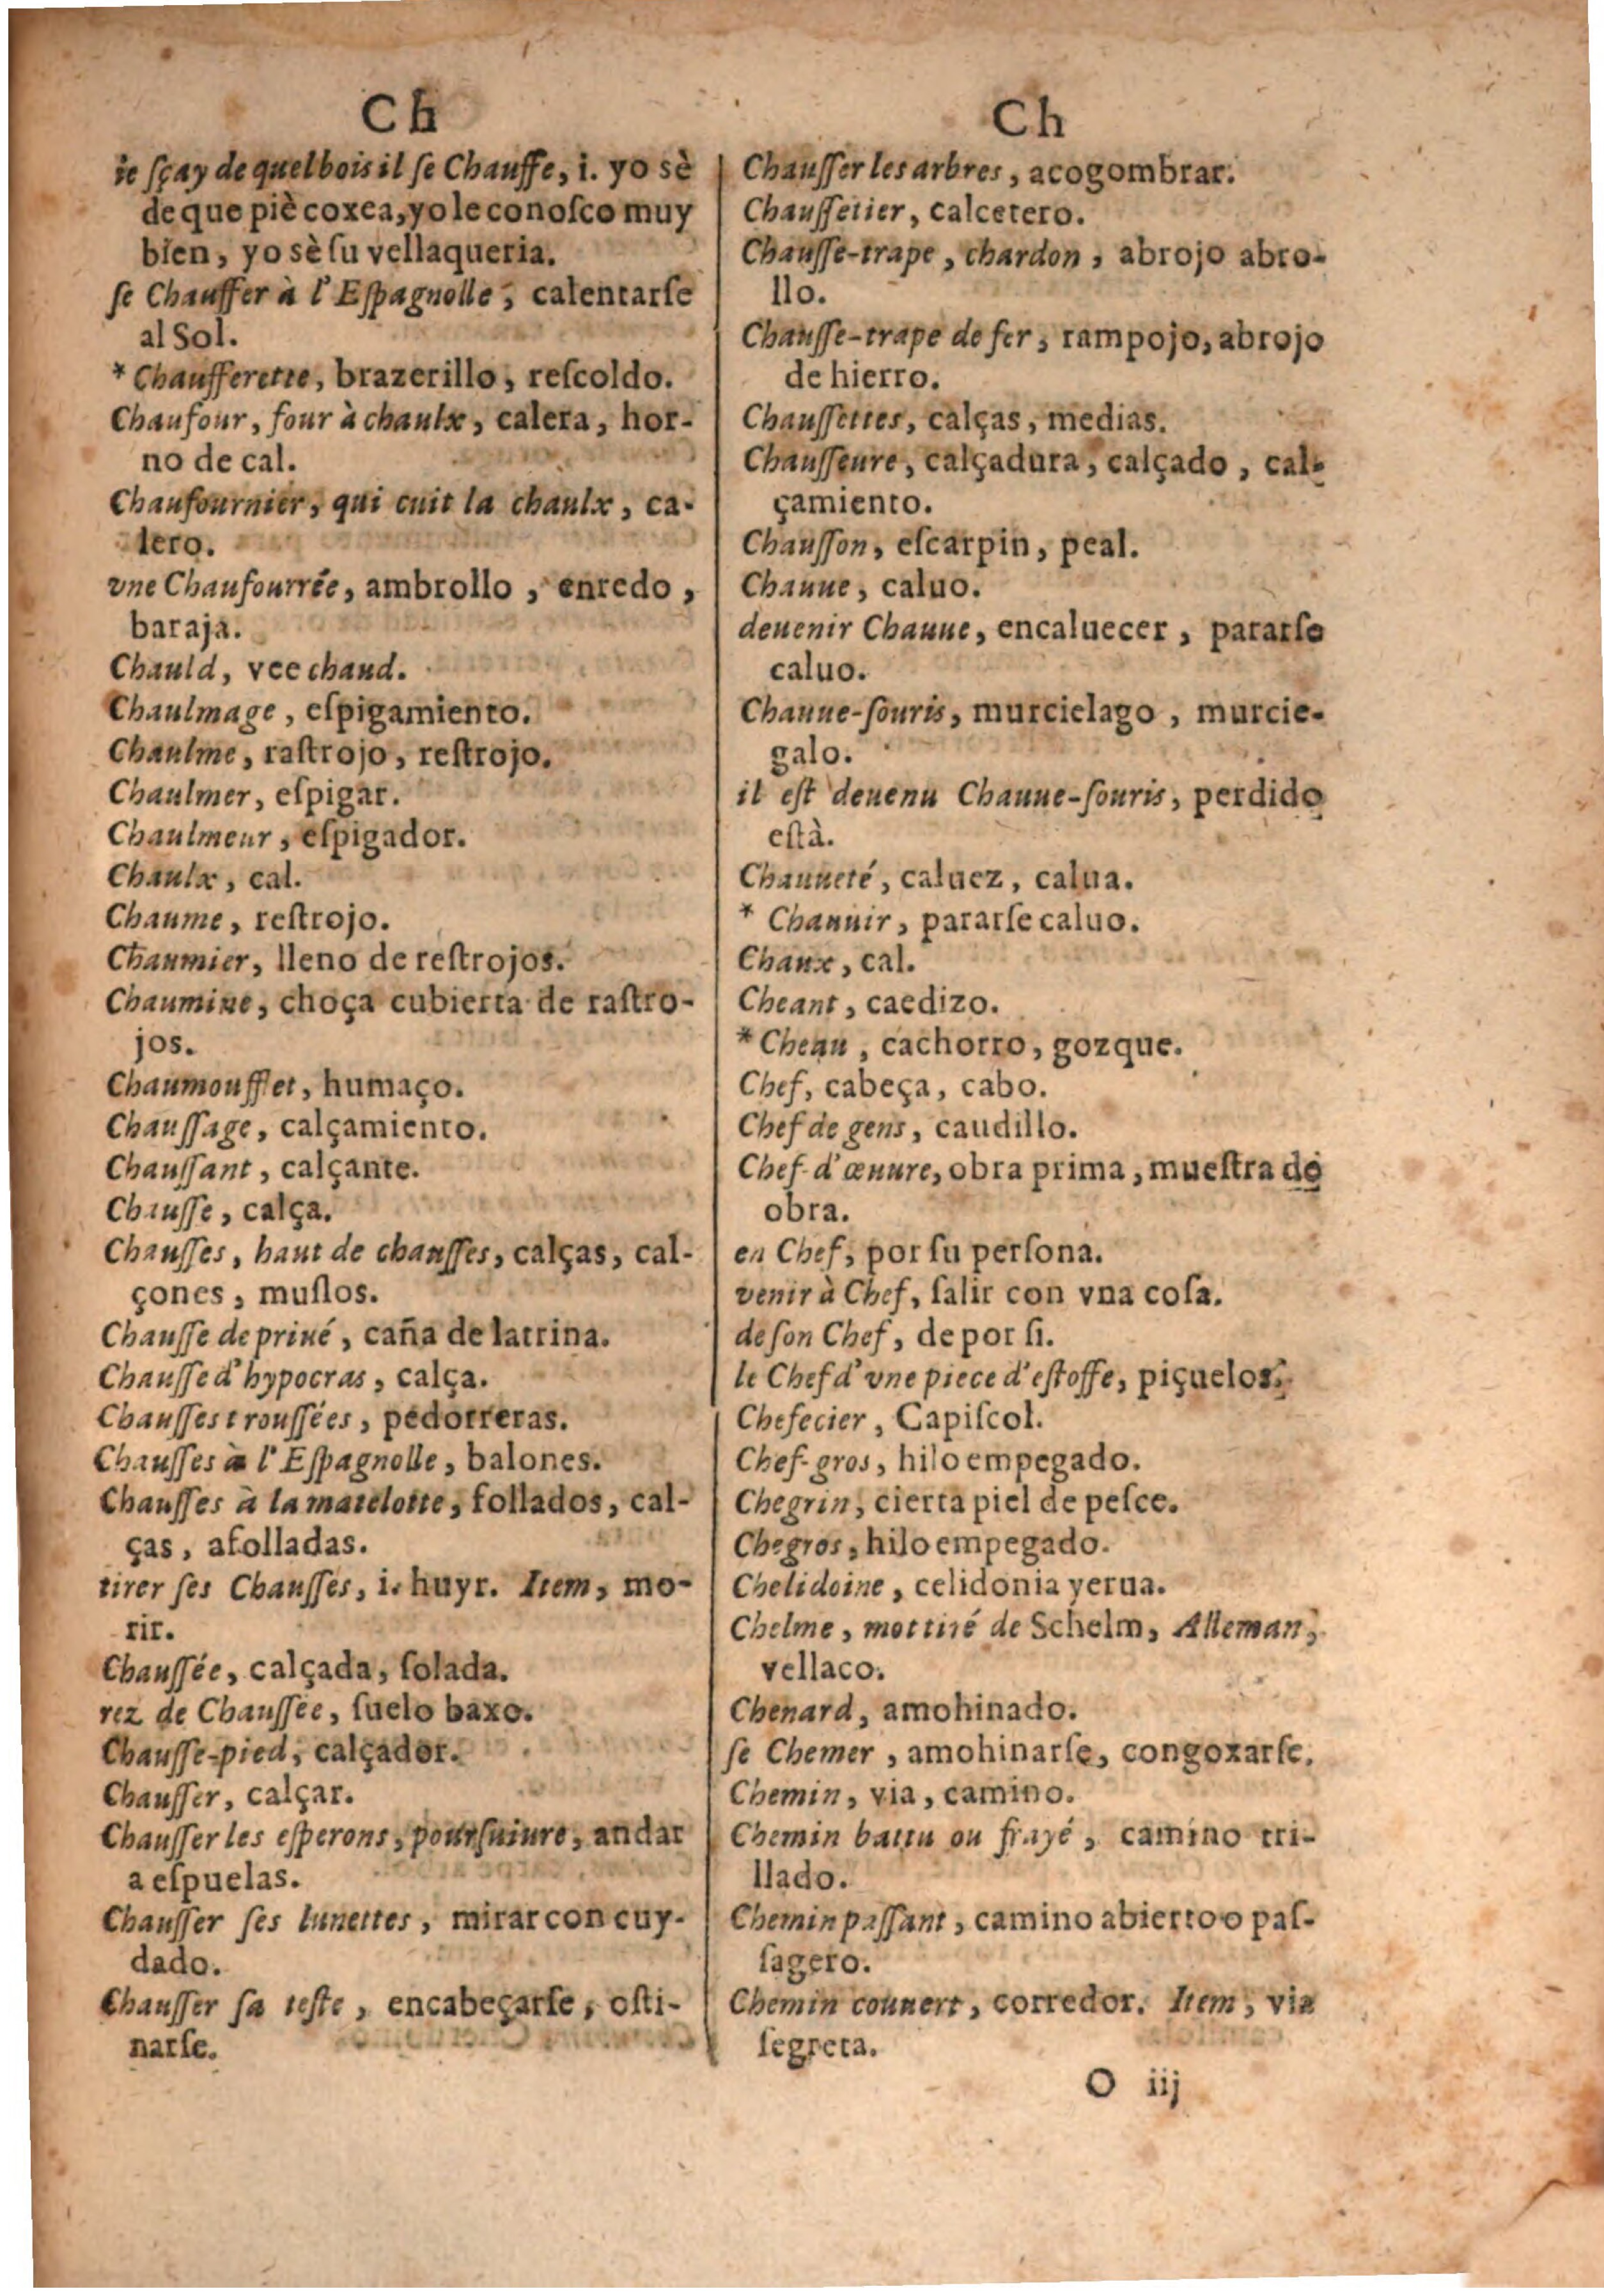 Ch
ie ſçay de quel bois il ſe Chauffe, i. yo sè
de que piè coxea, yo le conoſco muy
bien, yo sè ſu vellaqueria.
ſe Chauffer à l'Eſpagnolle, calentarſe
al Sol.
* Chaufferette, brazerillo, reſcoldo.
Chaufour, four à chaulx, calera, hor-
no de cal.
Chaufournier, qui cuit la chaulx, ca-
lero.
vne Chaufourrée, ambrollo, enredo,
baraja.
Chauld, vee chaud.
Chaulmage, eſpigamiento.
Chaulme, raſtrojo, reſtrojo.
Chaulmer, eſpigar.
Chaulmeur, eſpigador.
Chaulx, cal.
Chaume, reſtrojo.
Chaumier, lleno de reſtrojos.
Chaumine, choça cubierta de raſtro-
jos.
Chaumoufflet, humaço.
Chauſſage, calçamiento.
Chauſſant, calçante.
Chauſſe, calça.
Chauſſes, haut de chauſſes, calças, cal-
çones, muſlos.
Chauſſe de priué, caña de latrina.
Chauſſe d'hypocras, calça.
Chauſſes trouſſées, pedorreras.
Chauſſes à l'Eſpagnolle, balones.
Chauſſes à la matelotte, follados, cal-
ças, afolladas.
tirer ſes Chauſſes, i. huyr. Item, mo-
rir.
Chauſſée, calçada, ſolada.
rez de Chauſſée, ſuelo baxo.
Chauſſe-pied, calçador.
Chauſſer, calçar.
Chauſſer les eſperons, pourſuiure, andar
a eſpuelas.
Chauſſer ſes lunettes, mirar con cuy-
dado.
Chauſſer ſa teſte, encabeçarſe, oſti-
narſe.
Ch
Chauſſer les arbres, acogombrar.
Chauſſetier, calcetero.
Chauſſe-trape, chardon, abrojo abro-
llo.
Chauſſe-trape de fer, rampojo, abrojo
de hierro.
Chauſſettes, calças, medias.
Chauſſeure, calçadura, calçado, cal-
çamiento.
Chauſſon, eſcarpin, peal.
Chauue, caluo.
deuenir Chauue, encaluecer, pararſe
caluo.
Chauue-ſouris, murcielago, murcie-
galo.
il eſt deuenu Chauue-ſouris, perdido
eſtà.
Chauueté, caluez, calua.
* Chauuir, pararſe caluo.
Chaux, cal.
Cheant, caedizo.
* Cheau, cachorro, gozque.
Chef, cabeça, cabo.
Chef de gens, caudillo.
Chef-d'œuure, obra prima, mueſtra de
obra.
en Chef, por ſu perſona.
venir à Chef, ſalir con vna coſa.
de ſon Chef, de por ſi.
le Chef d'vne piece d'eſtoffe, piçuelos.
Chefecier, Capiſcol.
Chef-gros, hilo empegado.
Chegrin, cierta piel de peſce.
Chegros, hilo empegado.
Chelidoine, celidonia yerua.
Chelme, mot tiré de Schelm, Alleman,
vellaco.
Chenard, amohinado.
ſe Chemer, amohinarſe, congoxarſe.
Chemin, via, camino.
Chemin battu ou frayé, camino tri-
llado.
Chemin paſſant, camino abierto o paſ-
ſagero.
Chemin couuert, corredor. Item, via
ſegreta.
O iij